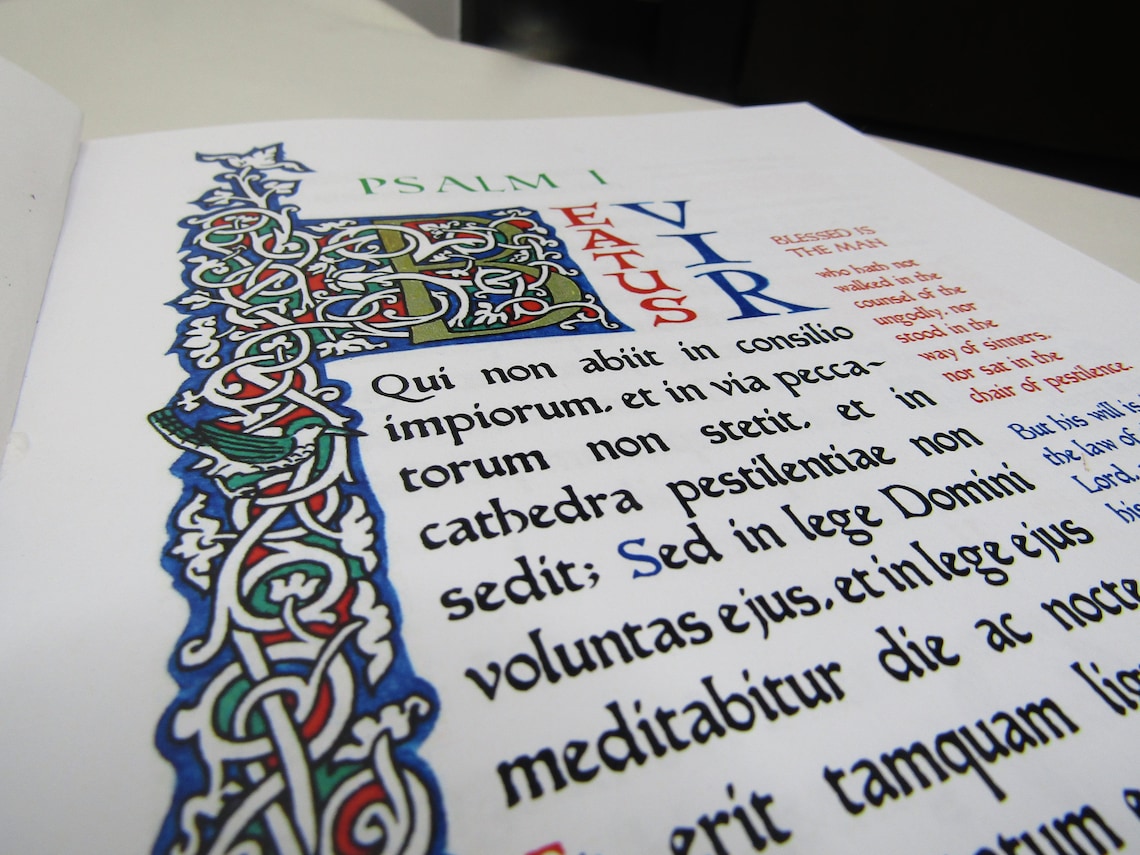 PSALM I
BEATUS
VIR
Qui non abiit in consilio
impiorum, et in via pecca~
torum non stetit, et in
cathedra pestilentiae non
sedit; Sed in lege Domini
voluntas ejus, et in lege ejus
meditabitur die ac nocte
erit tamquam
BLESSED IS
THE MAN
who hath not
walked in the
counsel of the
ungodly, nor
stood in the
way of sinners,
nor sat in the
chair of pestilence.
But his will is
the law of
Lord,
his